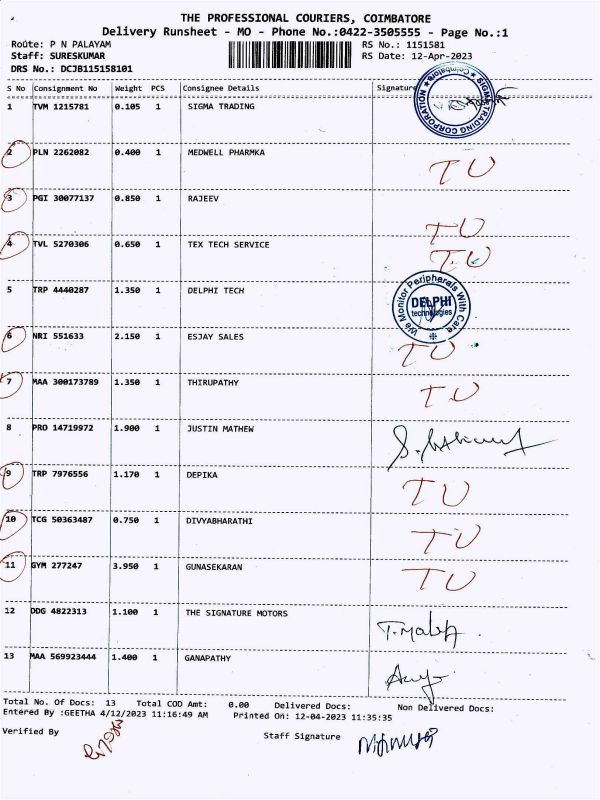 THE PROFESSIONAL COURIERS, COIMBATORE
Delivery Runsheet - MO - Phone No.:0422-3505555 - Page No.:1
Route: P N PALAYAM RS No.: 1151581
Staff: SURESKUMAR RS Date: 12-Apr-2023
DRS No.: DCJB115158101
S No Consignment No Weight PCS Consignee Details Signature
1 TVM 1215781 0.105 1 SIGMA TRADING
SIGMA TRADING CORPORATION ★ Coimbatore ★
2 PLN 2262082 0.400 1 MEDWELL PHARMKA TU
3 PGI 30077137 0.850 1 RAJEEV TU
4 TVL 5270306 0.650 1 TEX TECH SERVICE T.U
5 TRP 4440287 1.350 1 DELPHI TECH
We Monitor Peripherals With Care
DELPHI
technologies
6 NRI 551633 2.150 1 ESJAY SALES TU
7 MAA 300173789 1.350 1 THIRUPATHY T.U
8 PRO 14719972 1.900 1 JUSTIN MATHEW
9 TRP 7976556 1.170 1 DEPIKA TU
10 TCG 50363487 0.750 1 DIVYABHARATHI TU
11 GYM 277247 3.950 1 GUNASEKARAN TU
12 DDG 4822313 1.100 1 THE SIGNATURE MOTORS
13 MAA 569923444 1.400 1 GANAPATHY
Total No. Of Docs: 13 Total COD Amt: 0.00 Delivered Docs: Non Delivered Docs:
Entered By :GEETHA 4/12/2023 11:16:49 AM Printed On: 12-04-2023 11:35:35
Verified By Staff Signature